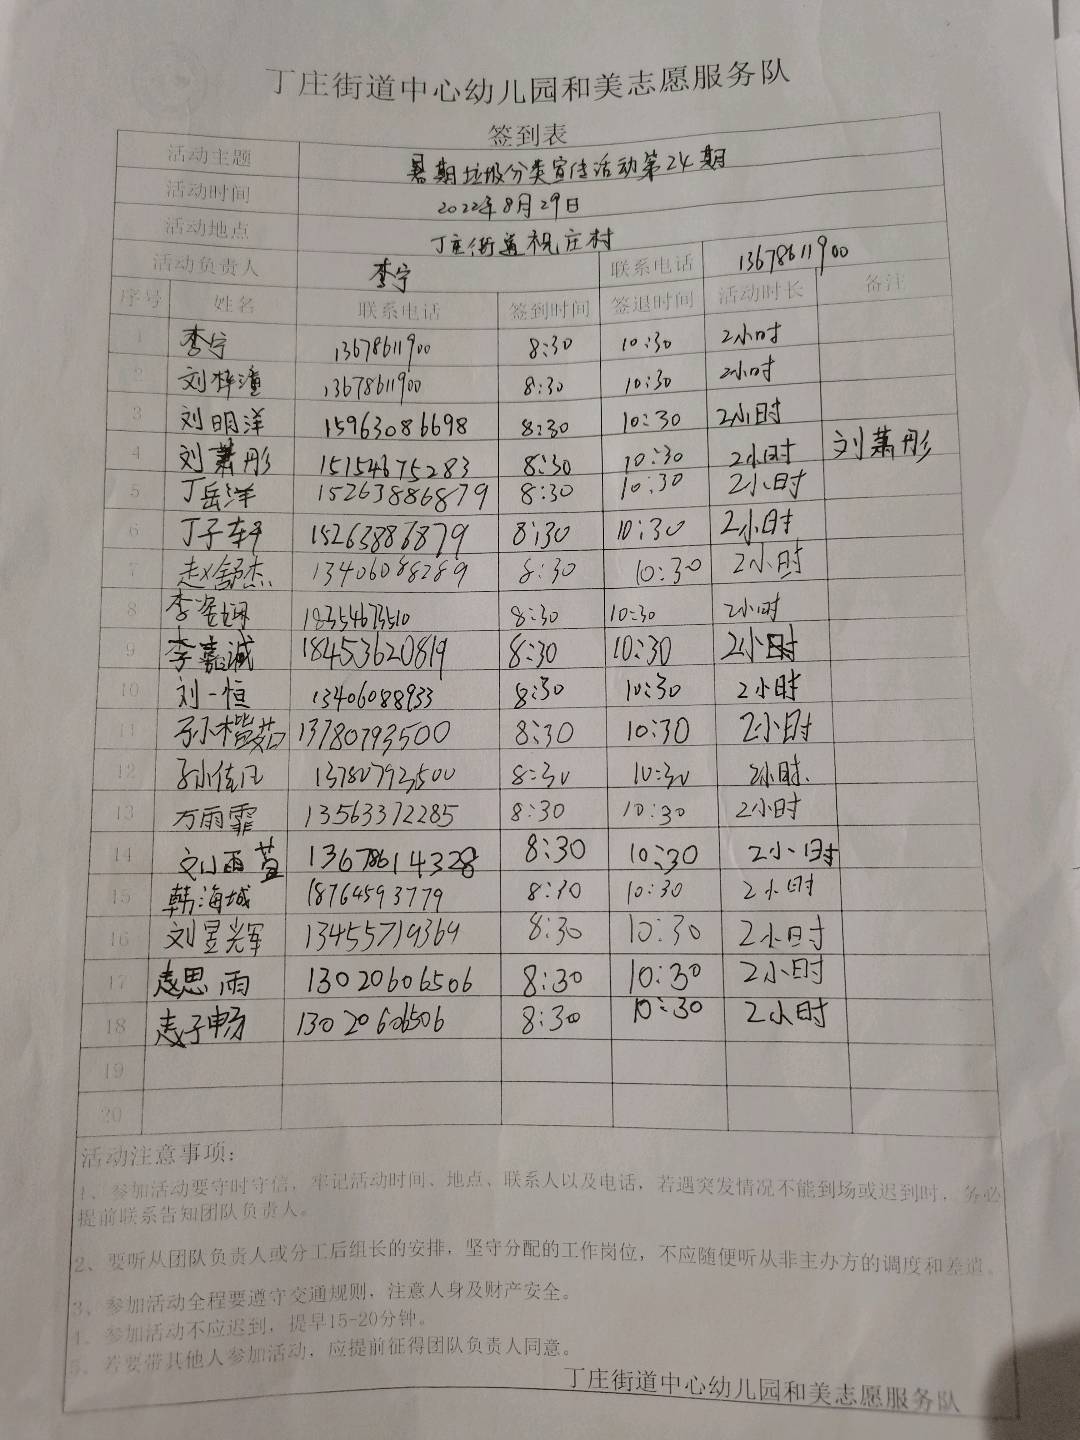 丁庄街道中心幼儿园和美志愿服务队
签到表
活动主题 暑期垃圾分类宣传活动第24期
活动时间 2022年8月29日
活动地点 丁庄街道祝庄村
活动负责人 李宁 联系电话 13678611900
序号 姓名 联系电话 签到时间 签退时间 活动时长 备注
1 李宁 13678611900 8:30 10:30 2小时
2 刘梓潼 13678611900 8:30 10:30 2小时
3 刘明洋 15963086698 8:30 10:30 2小时
4 刘萧彤 15154675283 8:30 10:30 2小时 刘萧彤
5 丁岳洋 15263886879 8:30 10:30 2小时
6 丁子轩 15263886879 8:30 10:30 2小时
7 赵舒杰 13406088289 8:30 10:30 2小时
8 李姿娴 18354673510 8:30 10:30 2小时
9 李嘉诚 18453620819 8:30 10:30 2小时
10 刘一恒 13406088933 8:30 10:30 2小时
11 孙楷茹 13780793500 8:30 10:30 2小时
12 孙佳凡 13780793500 8:30 10:30 2小时.
13 万雨霏 13563372285 8:30 10:30 2小时
14 刘雨萱 13678614328 8:30 10:30 2小时
15 韩海城 18764593779 8:30 10:30 2小时
16 刘昱辉 13455719369 8:30 10:30 2小时
17 思雨 13020606506 8:30 10:30 2小时
18 子畅 13020606506 8:30 10:30 2小时
19
20
活动注意事项：
1、参加活动要守时守信，牢记活动时间、地点、联系人以及电话，若遇突发情况不能到场或迟到时，务必
提前联系告知团队负责人。
2、要听从团队负责人或分工后组长的安排，坚守分配的工作岗位，不应随便听从非主办方的调度和差遣。
3、参加活动全程要遵守交通规则，注意人身及财产安全。
4、参加活动不应迟到，提早15-20分钟。
5、若要带其他人参加活动，应提前征得团队负责人同意。
丁庄街道中心幼儿园和美志愿服务队